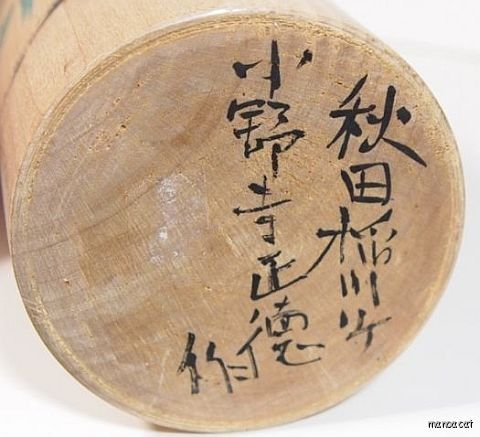 秋田稲川町
小野寺正徳
作
manoacat